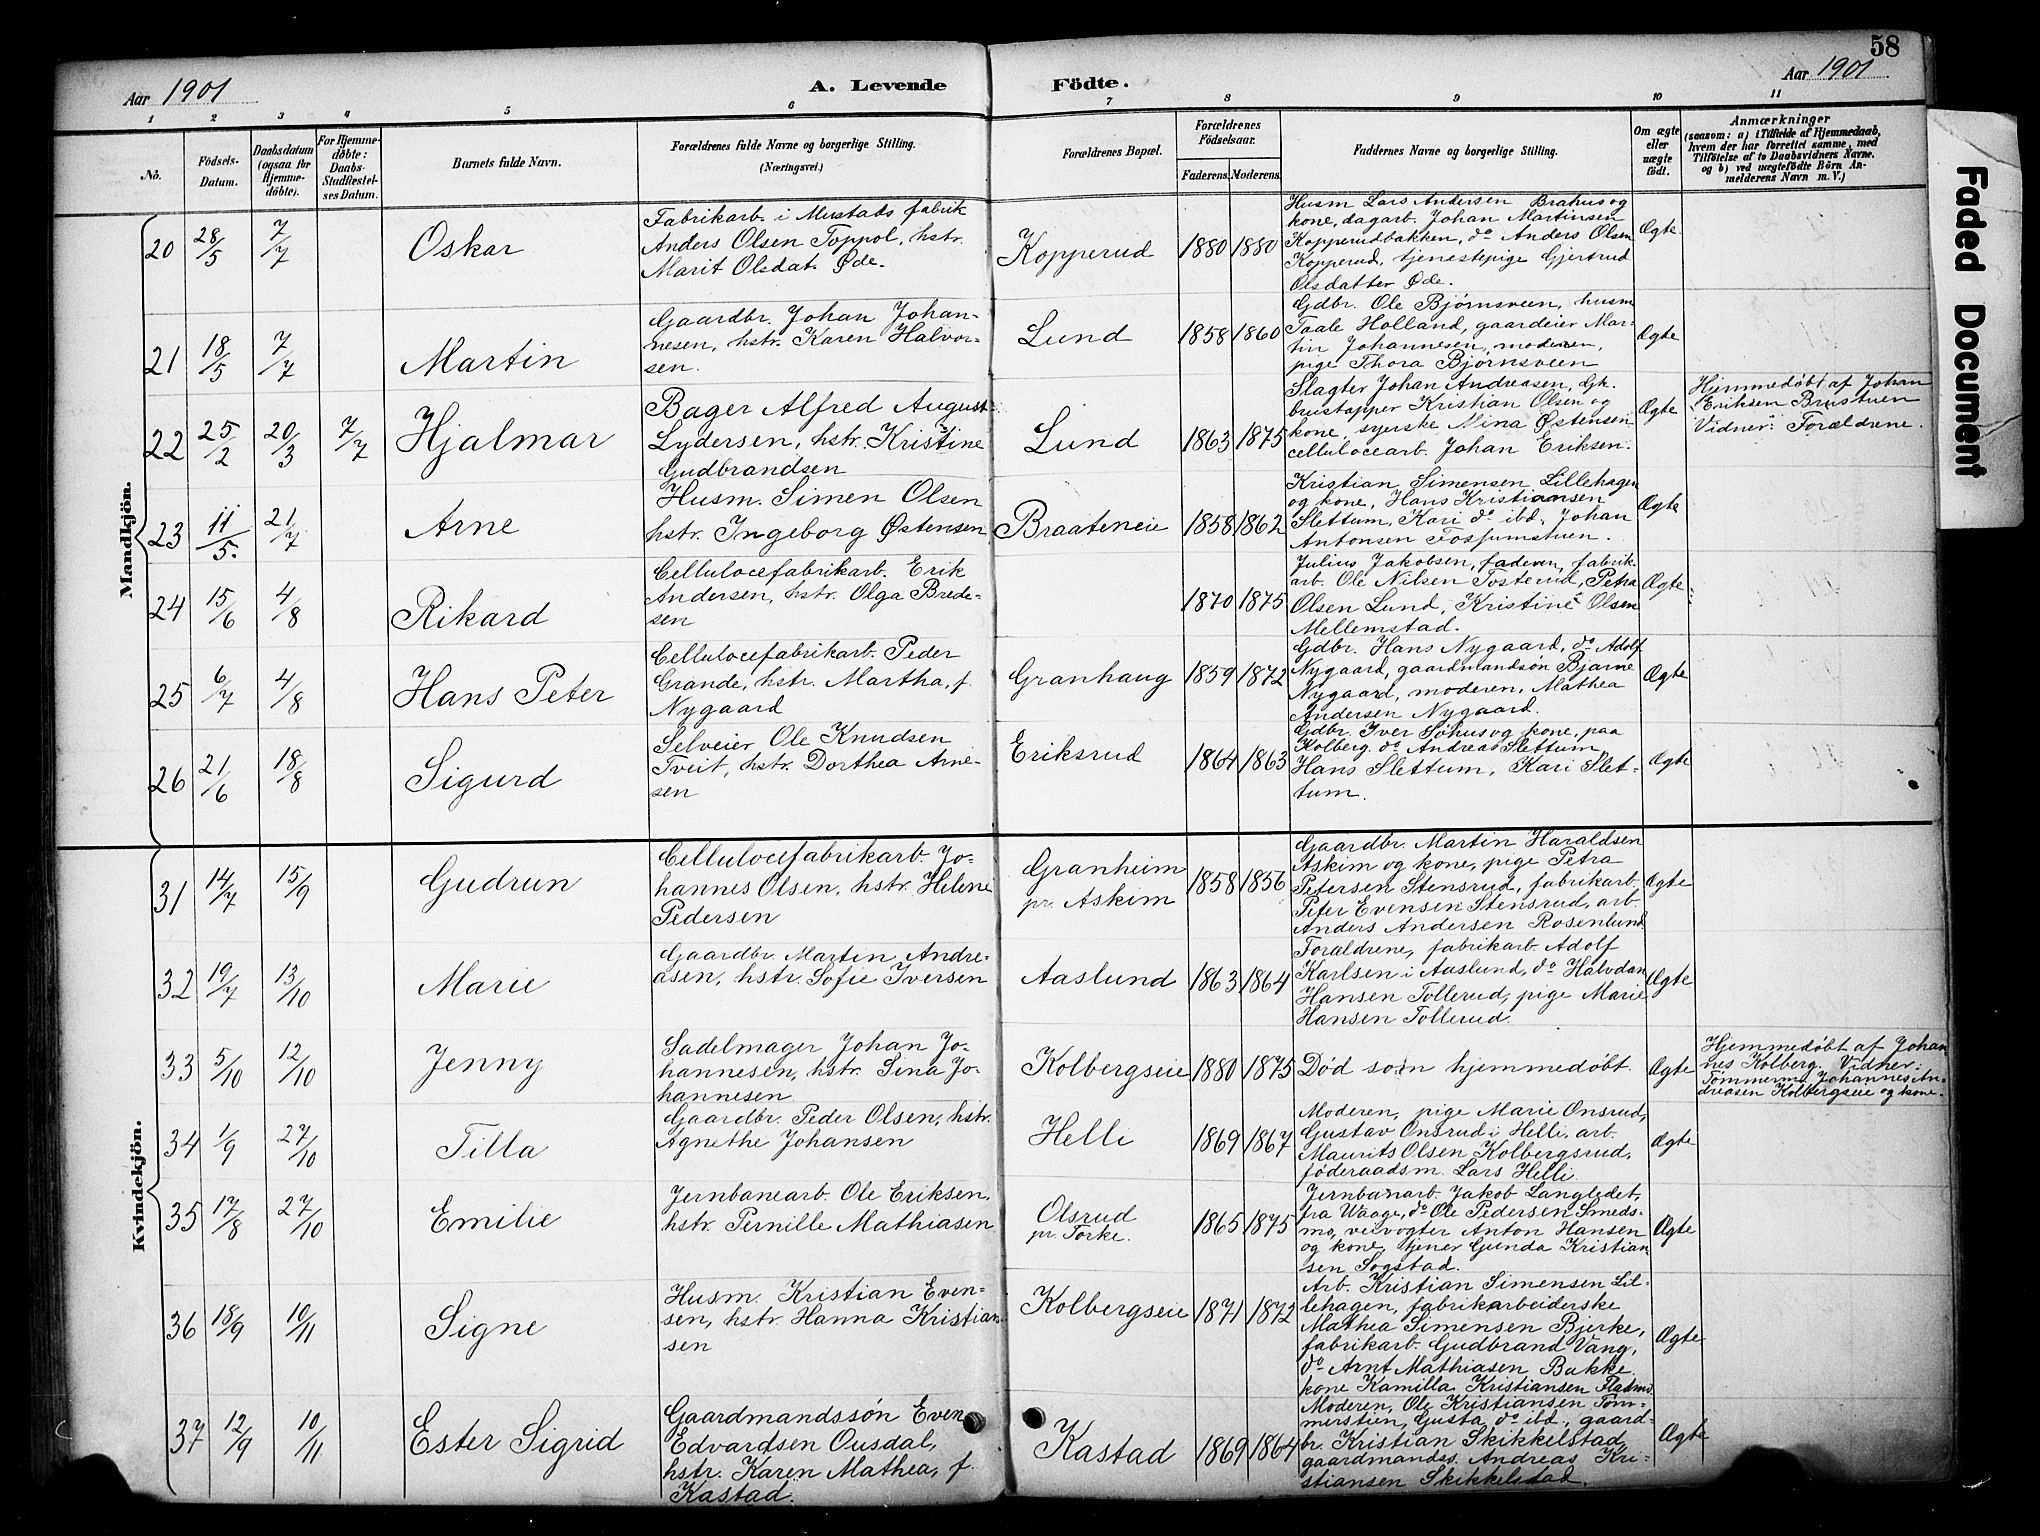 58
Aar 1901
A. Levende Födte.
Aar 1901
1 2 3 4 5 6 7 8 9 10 11
No.
Födsels-Datum.
Daabsdatum (ogsaa for Hjemme-döbte).
For Hjemme-döbte: Daabs-Stadfæstel-ses Datum.
Barnets fulde Navn.
Forældrenes fulde Navne og borgerlige Stilling.
(Næringsvei.)
Forældrenes Bopæl.
Forældrenes Födselsaar.
Faderens. Moderens.
Faddernes Navne og borgerlige Stilling.
Om ægte eller uægte født.
Anmærkninger
(saasom: a) i Tilfælde af Hjemmedaab,
hvem der har forrettet samme, med
Tilföielse af to Daabsvidners Navne.
og b) ved uægtefødte Börn An-
melderens Navn m. V.)
Faded Document
Mandkjön.
20 28/5 7/7 Oskar
Fabrikarb. i Mustads fabrik
Anders Olsen Toppol, hstr.
Marit Olsdat. Øde.
Kopperud 1880 1880
Husm Lars Andersen Brahus og
kone, dagarb. Johan Martinsen
Kopperudbakken, do Anders Olsen
Kopperud, tjenestepige Gjertrud
Olsdatter Øde.
Ægte.
21 18/5 7/7 Martin
Gaardbr. Johan Johan-
nesen, hstr. Karen Halvor-
sen.
Lund 1858 1860
Gdbr. Ole Bjørnsveen, husm
Taale Holland, gaardeier Mar-
tin Johannesen, moderen,
pige Thora Bjørnsveen
Ægte
22 25/2 20/3 7/7 Hjalmar
Bager Alfred August
Lydersen, hstr. Kristine
Gudbrandsen
Lund 1863 1875
Slagter Johan Andreasen, Gk.
brustapper Kristian Olsen og
kone, syerske Nina Østensen
cellulocearb. Johan Eriksen.
Ægte
Hjemmedøbt af Johan
Eriksen Brustuen
Vidner: Forældrene.
23 11/5. 21/7 Arne
Husm. Simen Olsen
hstr. Ingeborg Østensen
Braateneie 1858 1862
Kristian Simensen Lillehagen
og kone, Hans Kristiansen
Slettum, Kari do ibd, Johan
Antonsen Fossumstuen.
Ægte
24 15/6 4/8 Rikard
Cellulocefabrikarb. Erik
Andersen, hstr. Olga Brede-
sen
1870 1875
Julius Jakobsen, faderen, fabrik
arb. Ole Nilsen Tosterud, Petra
Olsen Lund, Kristine Olsen
Mellemstad.
Ægte
25 6/7 4/8 Hans Peter
Cellulocefabrikarb. Peder
Grande, hstr. Martha, f.
Nygaard
Granhaug 1859 1872
Gdbr. Hans Nygaard, do Adolf
Nygaard, gaardmandsøn Bjarne
Nygaard, moderen, Mathea
Andersen Nygaard.
Ægte
26 21/6 18/8 Sigurd
Selveier Ole Knudsen
Tveit, hstr. Dorthea Arne-
sen
Eriksrud 1864 1863
Gdbr. Iver Søhus og kone, paa
Kolberg, do Andreas Slettum
Hans Slettum, Kari Slet-
tum.
Ægte
Kvindekjön.
31 14/7 15/9 Gudrun
Cellulocefabrikarb. Jo-
hannes Olsen, hstr. Helene
Pedersen
Granheim
pr. Askim 1858 1856
Gaardbr. Martin Haraldsen
Askim og kone, pige Petra
Petersen Stensrud, fabrikarb.
Peter Evensen Stensrud, arb.
Anders Andersen Rosenlund
Ægte
32 19/7 13/10 Marie
Gaardbr. Martin Andre-
asen, hstr Sofie Iversen
Aaslund 1863 1864
Forældrene, fabrikarb. Adolf
Karlsen i Aaslund, do Halvdan
Hansen Tollerud, pige Marie
Hansen Tollerud.
Ægte
33 5/10 12/10 Jenny
Sadelmager Johan Jo-
hannesen, hstr. Sina Jo-
hannesen
Kolbergseie 1880 1875 Død som hjemmedøbt. Ægte
Hjemmedøbt af Johan
nes Kolberg. Vidner:
Tømmerm. Johannes An-
dreasen Kolbergseie og kone.
34 1/9 27/10 Tilla
Gaardbr. Peder Olsen, hstr.
Agnethe Johansen
Helli 1869 1867
Moderen, pige Marie Onsrud,
Gustav Onsrud i Helli, arb.
Maurits Olsen Kolbergsrud,
føderaadsm. Lars Helli
Ægte
35 17/8 27/10 Emilie
Jernbanearb. Ole Eriksen,
hstr. Pernille Mathiasen
Olsrud
pr. Torke. 1865 1875
Jernbanarb. Jakob Langledet,
fra Waage, do Ole Pedersen Smeds-
mo, veivogter Anton Hansen
og kone, tjener Gunda Kristian
sen Sogstad.
Ægte
36 18/9 10/11 Signe
Husm. Kristian Even-
sen, hstr. Hanna Kristian
sen
Kolbergseie 1871 1872
Arb. Kristian Simensen Lil-
lehagen, fabrikarbeiderske
Mathea Simensen Bjerke,
fabrikarb. Gudbrand Vang,
do Arnt Mathiasen Bakke
kone Kamilla Kristiansen Fladmo
Ægte
37 12/9 10/11 Ester Sigrid
Gaardmandssøn Even
Edvardsen Ousdal,
hstr. Karen Mathea, f.
Kastad.
Kastad 1869 1864
Moderen, Ole Kristiansen Tøm-
merstien, Gusta do ibd., gaard-
br. Kristian Skikkelstad,
gaardmandss. Andreas Kri-
stiansen Skikkelstad.
Ægte